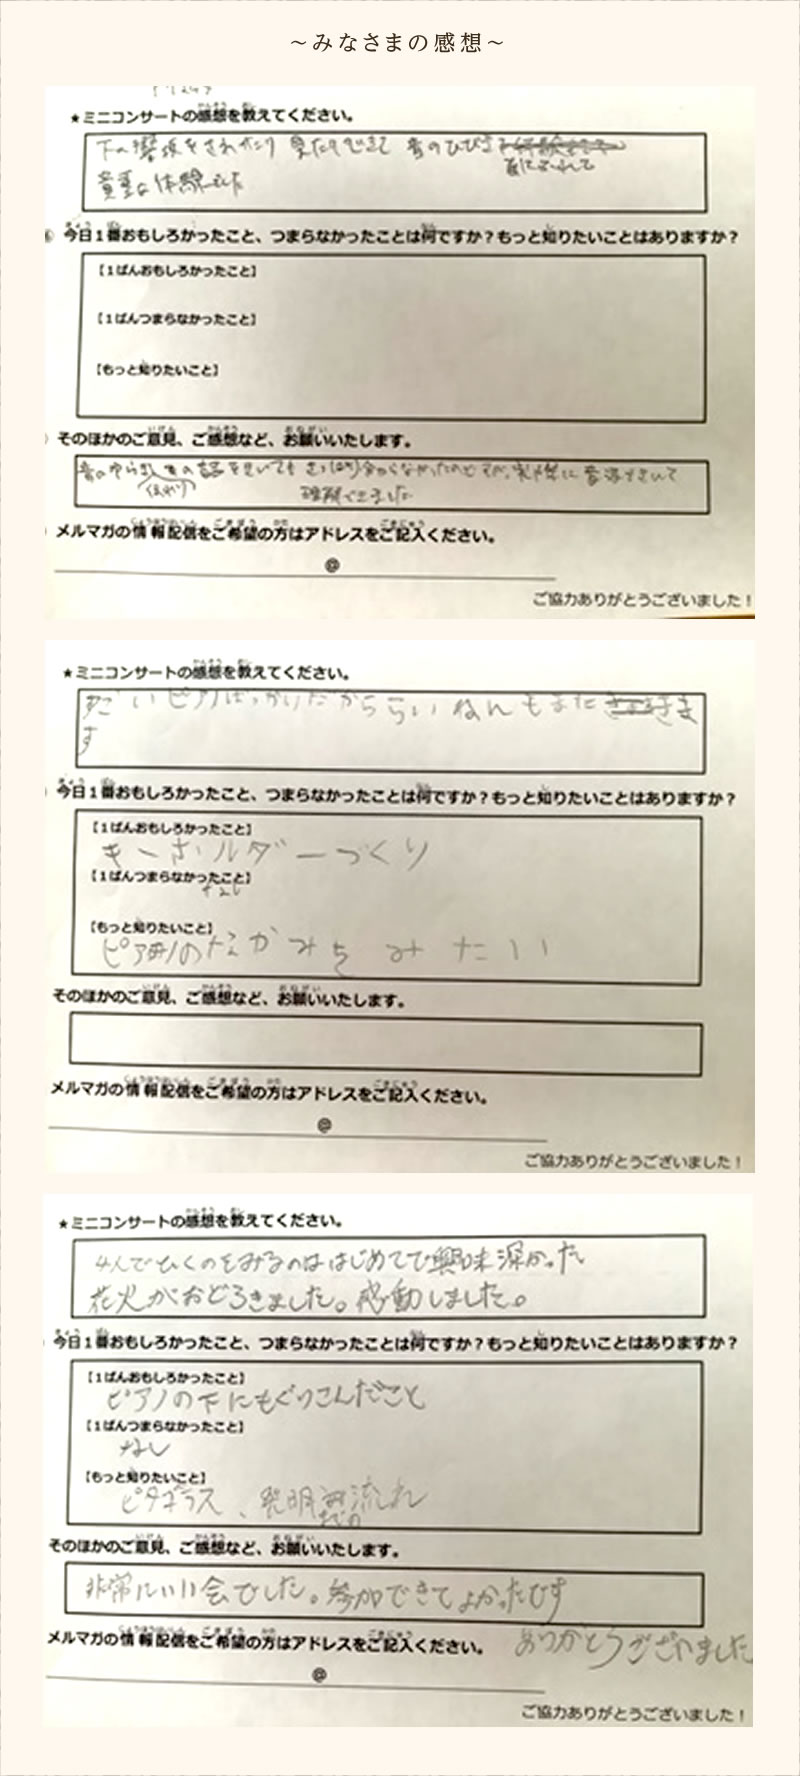 ～みなさまの感想～
★ミニコンサートの感想を教えてください。
貴重な体験でした
今日1番おもしろかったこと、つまらなかったことは何ですか？もっと知りたいことはありますか？
【1ばんおもしろかったこと】
【1ばんつまらなかったこと】
【もっと知りたいこと】
そのほかのご意見、ご感想など、お願いいたします。
理解できました
メルマガの情報配信をご希望の方はアドレスをご記入ください。
@
ご協力ありがとうございました！
★ミニコンサートの感想を教えてください。
すごいピアノばっかりだかららいねんもまたきま
す
今日1番おもしろかったこと、つまらなかったことは何ですか？もっと知りたいことはありますか？
【1ばんおもしろかったこと】
キーホルダーづくり
【1ばんつまらなかったこと】
なし
【もっと知りたいこと】
ピアノのなかみをみたい
そのほかのご意見、ご感想など、お願いいたします。
メルマガの情報配信をご希望の方はアドレスをご記入ください。
@
ご協力ありがとうございました！
★ミニコンサートの感想を教えてください。
4人でひくのをみるのははじめてで興味深かった
花火がおどろきました。感動しました。
今日1番おもしろかったこと、つまらなかったことは何ですか？もっと知りたいことはありますか？
【1ばんおもしろかったこと】
ピアノの下にもぐりこんだこと
【1ばんつまらなかったこと】
なし
【もっと知りたいこと】
ピタゴラス、発明などの流れ
そのほかのご意見、ご感想など、お願いいたします。
非常にいい会でした。参加できてよかったです
メルマガの情報配信をご希望の方はアドレスをご記入ください。
ありがとうございました
@
ご協力ありがとうございました！